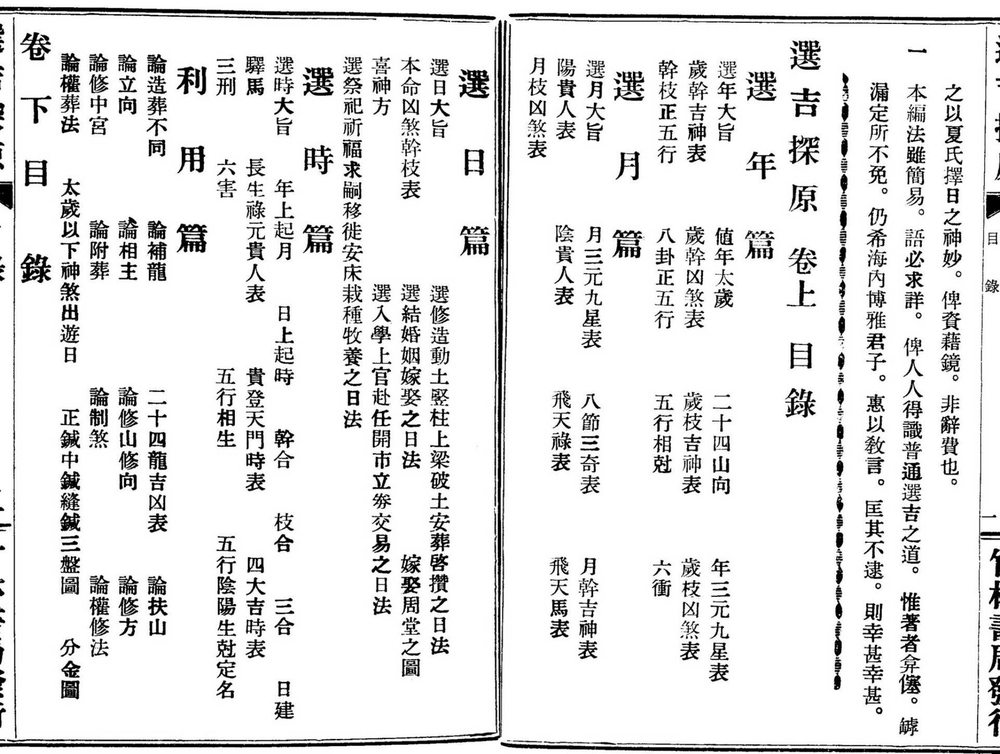 之以夏氏擇日之神妙。俾資藉鏡。非辭費也。
一 本編法雖簡易。語必求詳。俾人人得識普通選吉之道。惟著者弇僿。罅
漏定所不免。仍希海內博雅君子。惠以敎言。匡其不逮。則幸甚幸甚。
選吉探原 卷上 目錄
選年篇
選年大旨 値年太歲 二十四山向 年三元九星表
歲幹吉神表 歲幹凶煞表 歲枝吉神表 歲枝凶煞表
幹枝正五行 八卦正五行 五行相尅 六衝
選月篇
選月大旨 月三元九星表 八節三奇表 月幹吉神表
陽貴人表 陰貴人表 飛天祿表 飛天馬表
月枝凶煞表
目錄
選日篇
選日大旨 選修造動土竪柱上梁破土安葬啓攢之日法
本命凶煞幹枝表 選結婚姻嫁娶之日法 嫁娶周堂之圖
喜神方 選入學上官赴任開市立券交易之日法
選祭祀祈福求嗣移徙安床栽種牧養之日法
選時篇
選時大旨 年上起月 日上起時 幹合 枝合 三合 日建
驛馬 長生祿元貴人表 貴登天門時表 四大吉時表
三刑 六害 五行相生 五行陰陽生尅定名
利用篇
論造葬不同 論補龍 二十四龍吉凶表 論扶山
論立向 論相主 論修山修向 論修方
論修中宮 論附葬 論制煞 論權修法
論權葬法 太歲以下神煞出遊日 正鍼中鍼縫鍼三盤圖 分金圖
卷下目錄